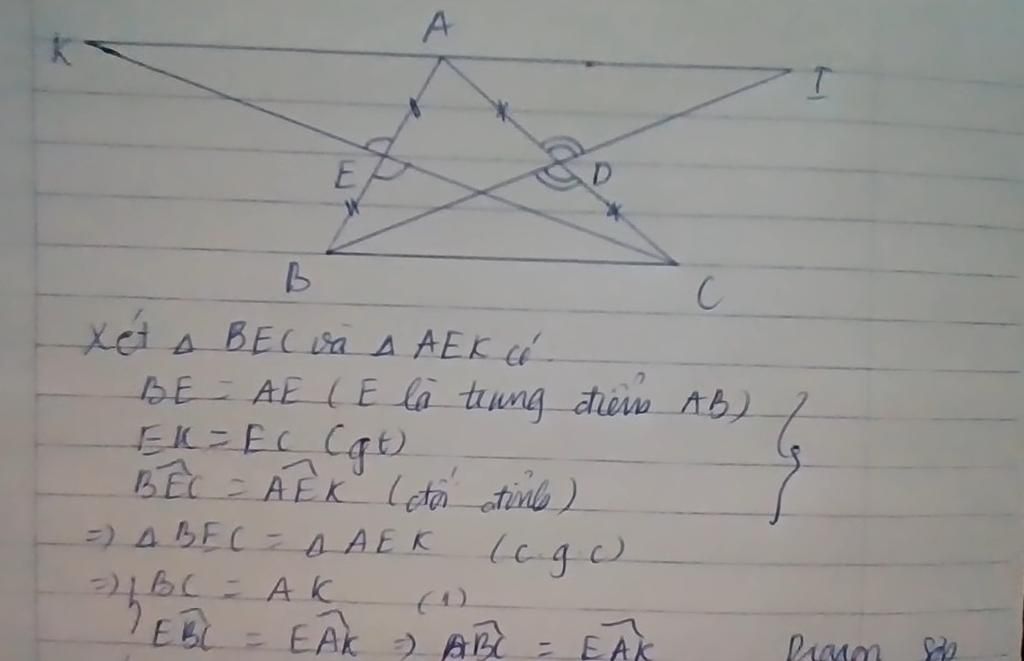 A
K
I
E
D
B
C
Xét Δ BEC và Δ AEK có
BE = AE (E là trung điểm AB)
EK = EC (gt)
BÊC = AÊK (đối đỉnh)
=> Δ BEC = Δ AEK (c.g.c)
=> { BC = AK (1)
EB̂C = EÂK => AB̂C = EÂK